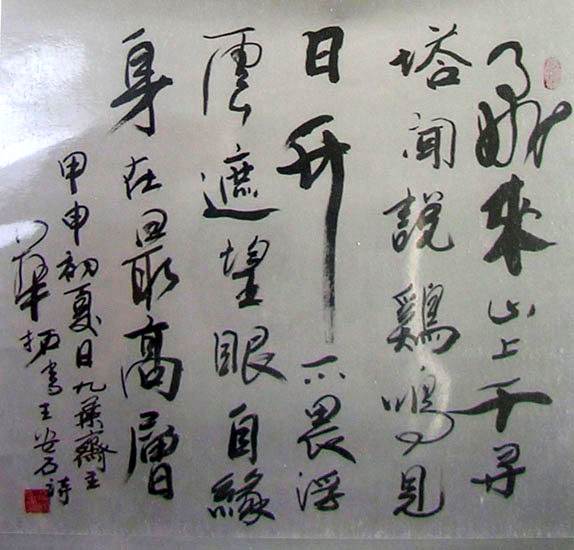 飛來山上千寻
塔聞說鷄鳴見
日升不畏浮
雲遮望眼自緣
身在最高層
甲申初夏日九葉齋主
書王安石詩